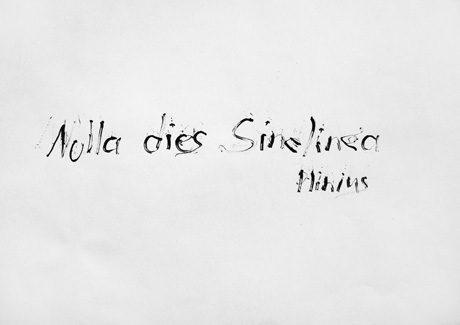 Nulla dies Sinelinea
Plinius